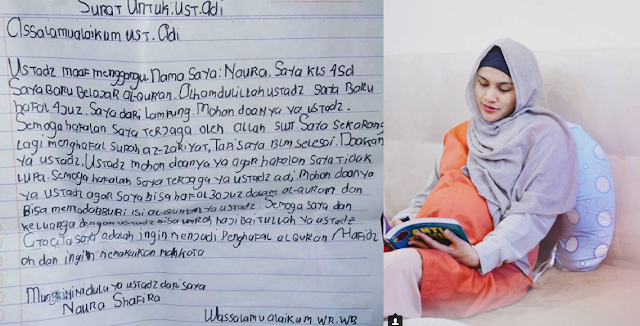 SURAT UNTUK: UST. ADI
ASSALAMUALAIKUM UST. ADI
USTADZ MAAF MENGGANGU. NAMA SAYA: NAURA. SAYA KLS 4 SD
SAYA BARU BELAJAR AL-QURAN. ALHAMDULILLAH USTADZ SAYA BARU
HAFAL 4 JUZ. SAYA DARI LAMPUNG. MOHON DOANYA YA USTADZ.
SEMOGA HAFALAN SAYA TERJAGA OLEH ALLAH SWT. SAYA SEKARANG
LAGI MENGHAFAL SUROH AZ-ZARIYAT, TAPI SAYA BLM SELESAI. DOAKAN
YA USTADZ. USTADZ MOHON DOANYA YA AGAR HAFALAN SAYA TIDAK
LUPA. SEMOGA HAFALAN SAYA TERJAGA YA USTADZ ADI. MOHON DOANYA
YA USTADZ AGAR SAYA BISA HAFAL 30 JUZ DALAM AL-QURAN DAN
BISA MENTADABBURI ISI AL-QURAN YA USTADZ. SEMOGA SAYA DAN
KELUARGA DENGAN USTADZ BISA UMROH HAJI BAITULLAH YA USTADZ
CITA CITA SAYA ADALAH INGIN MENJADI PENGHAFAL AL QURAN / HAFIDZ
OH DAN INGIN MEMAKAIKAN MAHKOTA
INI DULU YA USTADZ DARI SAYA
NAURA SHAFIRA
WASSALAMUALAIKUM WR. WB